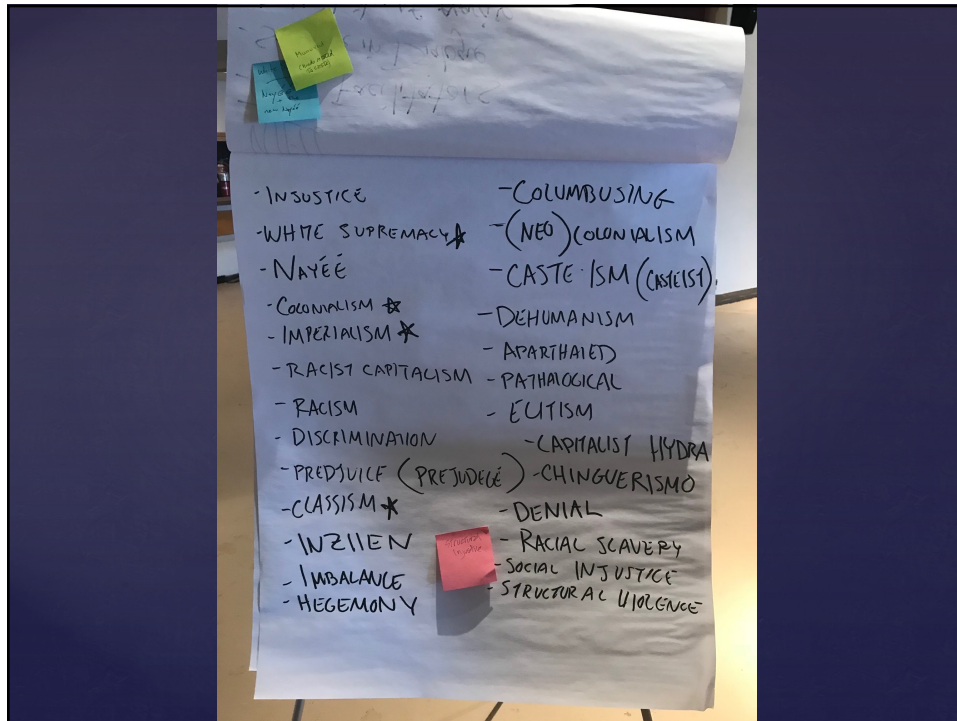 - INJUSTICE
- WHITE SUPREMACY
- NAYÉÉ
- COLONIALISM
- IMPERIALISM
- RACIST CAPITALISM
- RACISM
- DISCRIMINATION
- PREDJUICE (PREJUDEGÉ)
- CLASSISM
- INZIIEN
- IMBALANCE
- HEGEMONY
- COLUMBUSING
- (NEO) COLONIALISM
- CASTE·ISM (CASTEIST)
- DEHUMANISM
- APARTHAIED
- PATHALOGICAL
- ELITISM
- CAPITALIST HYDRA
- CHINGUERISMO
- DENIAL
- RACIAL SLAVERY
- SOCIAL INJUSTICE
- STRUCTURAL VIOLENCE
Structural